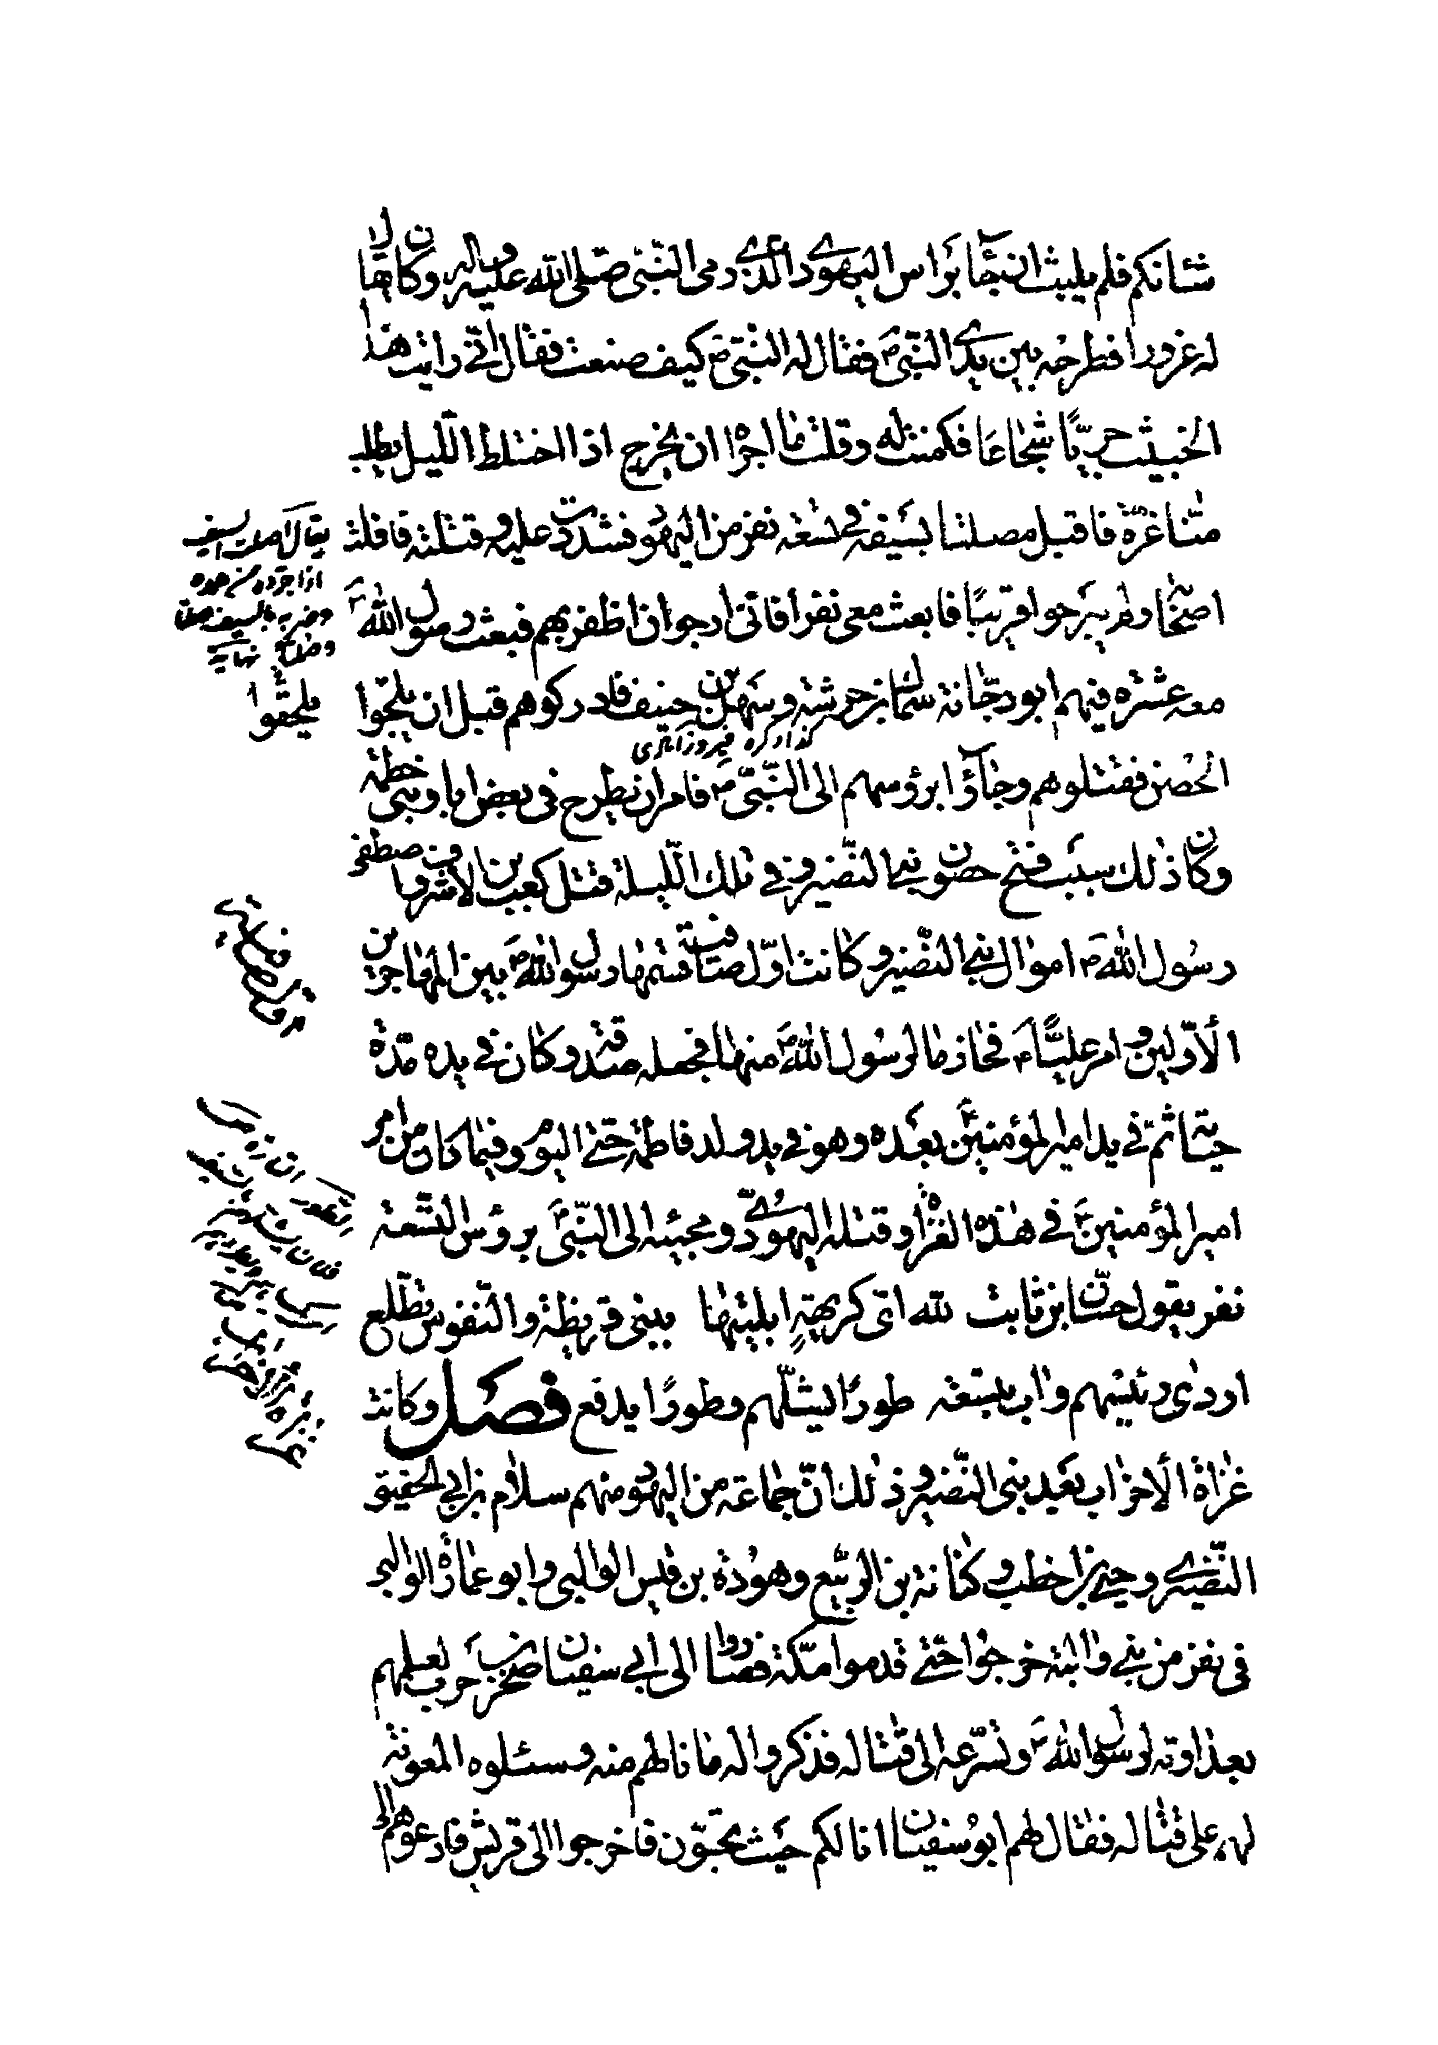 شانكم فلم يلبث ان جاء براس اليهودي الذي رمى النبي صلى الله عليه واله وكان يقال
له غرورا فطرحه بين يدي النبي ص فقال له النبي ص كيف صنعت فقال اني رايت هذا
الخبيث جريا شجاعا فكمنت له وقلت ما اجراه ان يخرج اذا اختلط الليل يطلب
منا غرة فاقبل مصلتا بسيفه في تسعة نفر من اليهود فشددت عليه وقتلته فافلت
اصحابه ولم يبرحوا قريبا فابعث معي نفرا فاني ارجو ان اظفر بهم فبعث رسول الله ص
معه عشرة فيهم ابو دجانة سماك بن خرشة وسهل بن حنيف فادركوهم قبل ان يلجوا
الحصن فقتلوهم وجاؤا برؤسهم الى النبي ص فامر ان تطرح في بعض ابار بني خطمة
وكان ذلك سبب فتح حصون بني النضير وفي تلك الليلة قتل كعب بن الاشرف واصطفى
رسول الله ص اموال بني النضير وكانت اول صافية قسمها رسول الله ص بين المهاجرين
الاولين وامر عليا ع فحاز ما لرسول الله ص منها فجعله صدقة وكان في يده مدة
حيوته ثم في يد امير المؤمنين ع بعده وهو في يد ولد فاطمة حتى اليوم وفيما كان من امر
امير المؤمنين ع في هذه الغزاة وقتله اليهودي ومجيئه الى النبي ص برؤس التسعة
نفر يقول حسان بن ثابت لله اي كريهة ابليتها ببني قريظة والنفوس تطلع
اردى رئيسهم واب بتسعة طورا يشلهم وطورا يدفع فصل وكانت
غزاة الاحزاب بعد بني النضير وذلك ان جماعة من اليهود منهم سلام بن ابي الحقيق
النضيري وحيي بن اخطب وكنانة بن الربيع وهوذة بن قيس الوالبي وابو عمارة الوالبي
في نفر من بني والبة خرجوا حتى قدموا مكة فصاروا الى ابي سفيان صخر بن حرب لعلمهم
بعداوته لرسول الله ص وتسرعه الى قتاله فذكروا له ما نالهم منه وسئلوه المعونة
لهم على قتاله فقال لهم ابو سفيان انا لكم حيث تحبون فاخرجوا الى قريش فادعوهم الى
يقال اصلت السيف
اذا جرده من غمده
وضربه بالسيف صلتا
وصلتا نهاية
يلحقوا